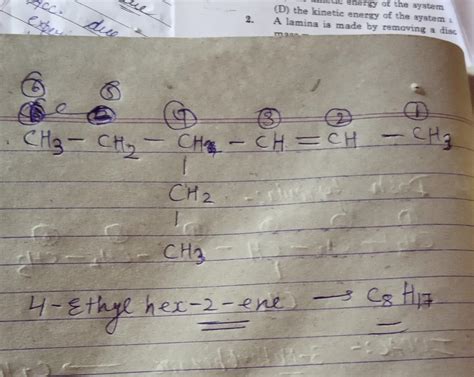 energy of the system
(D) the kinetic energy of the system
2. A lamina is made by removing a disc
6 5
4 3 2 1
CH3 – CH2 – CH – CH = CH – CH3
CH2
CH3
4-Ethyl hex-2-ene → C8 H17